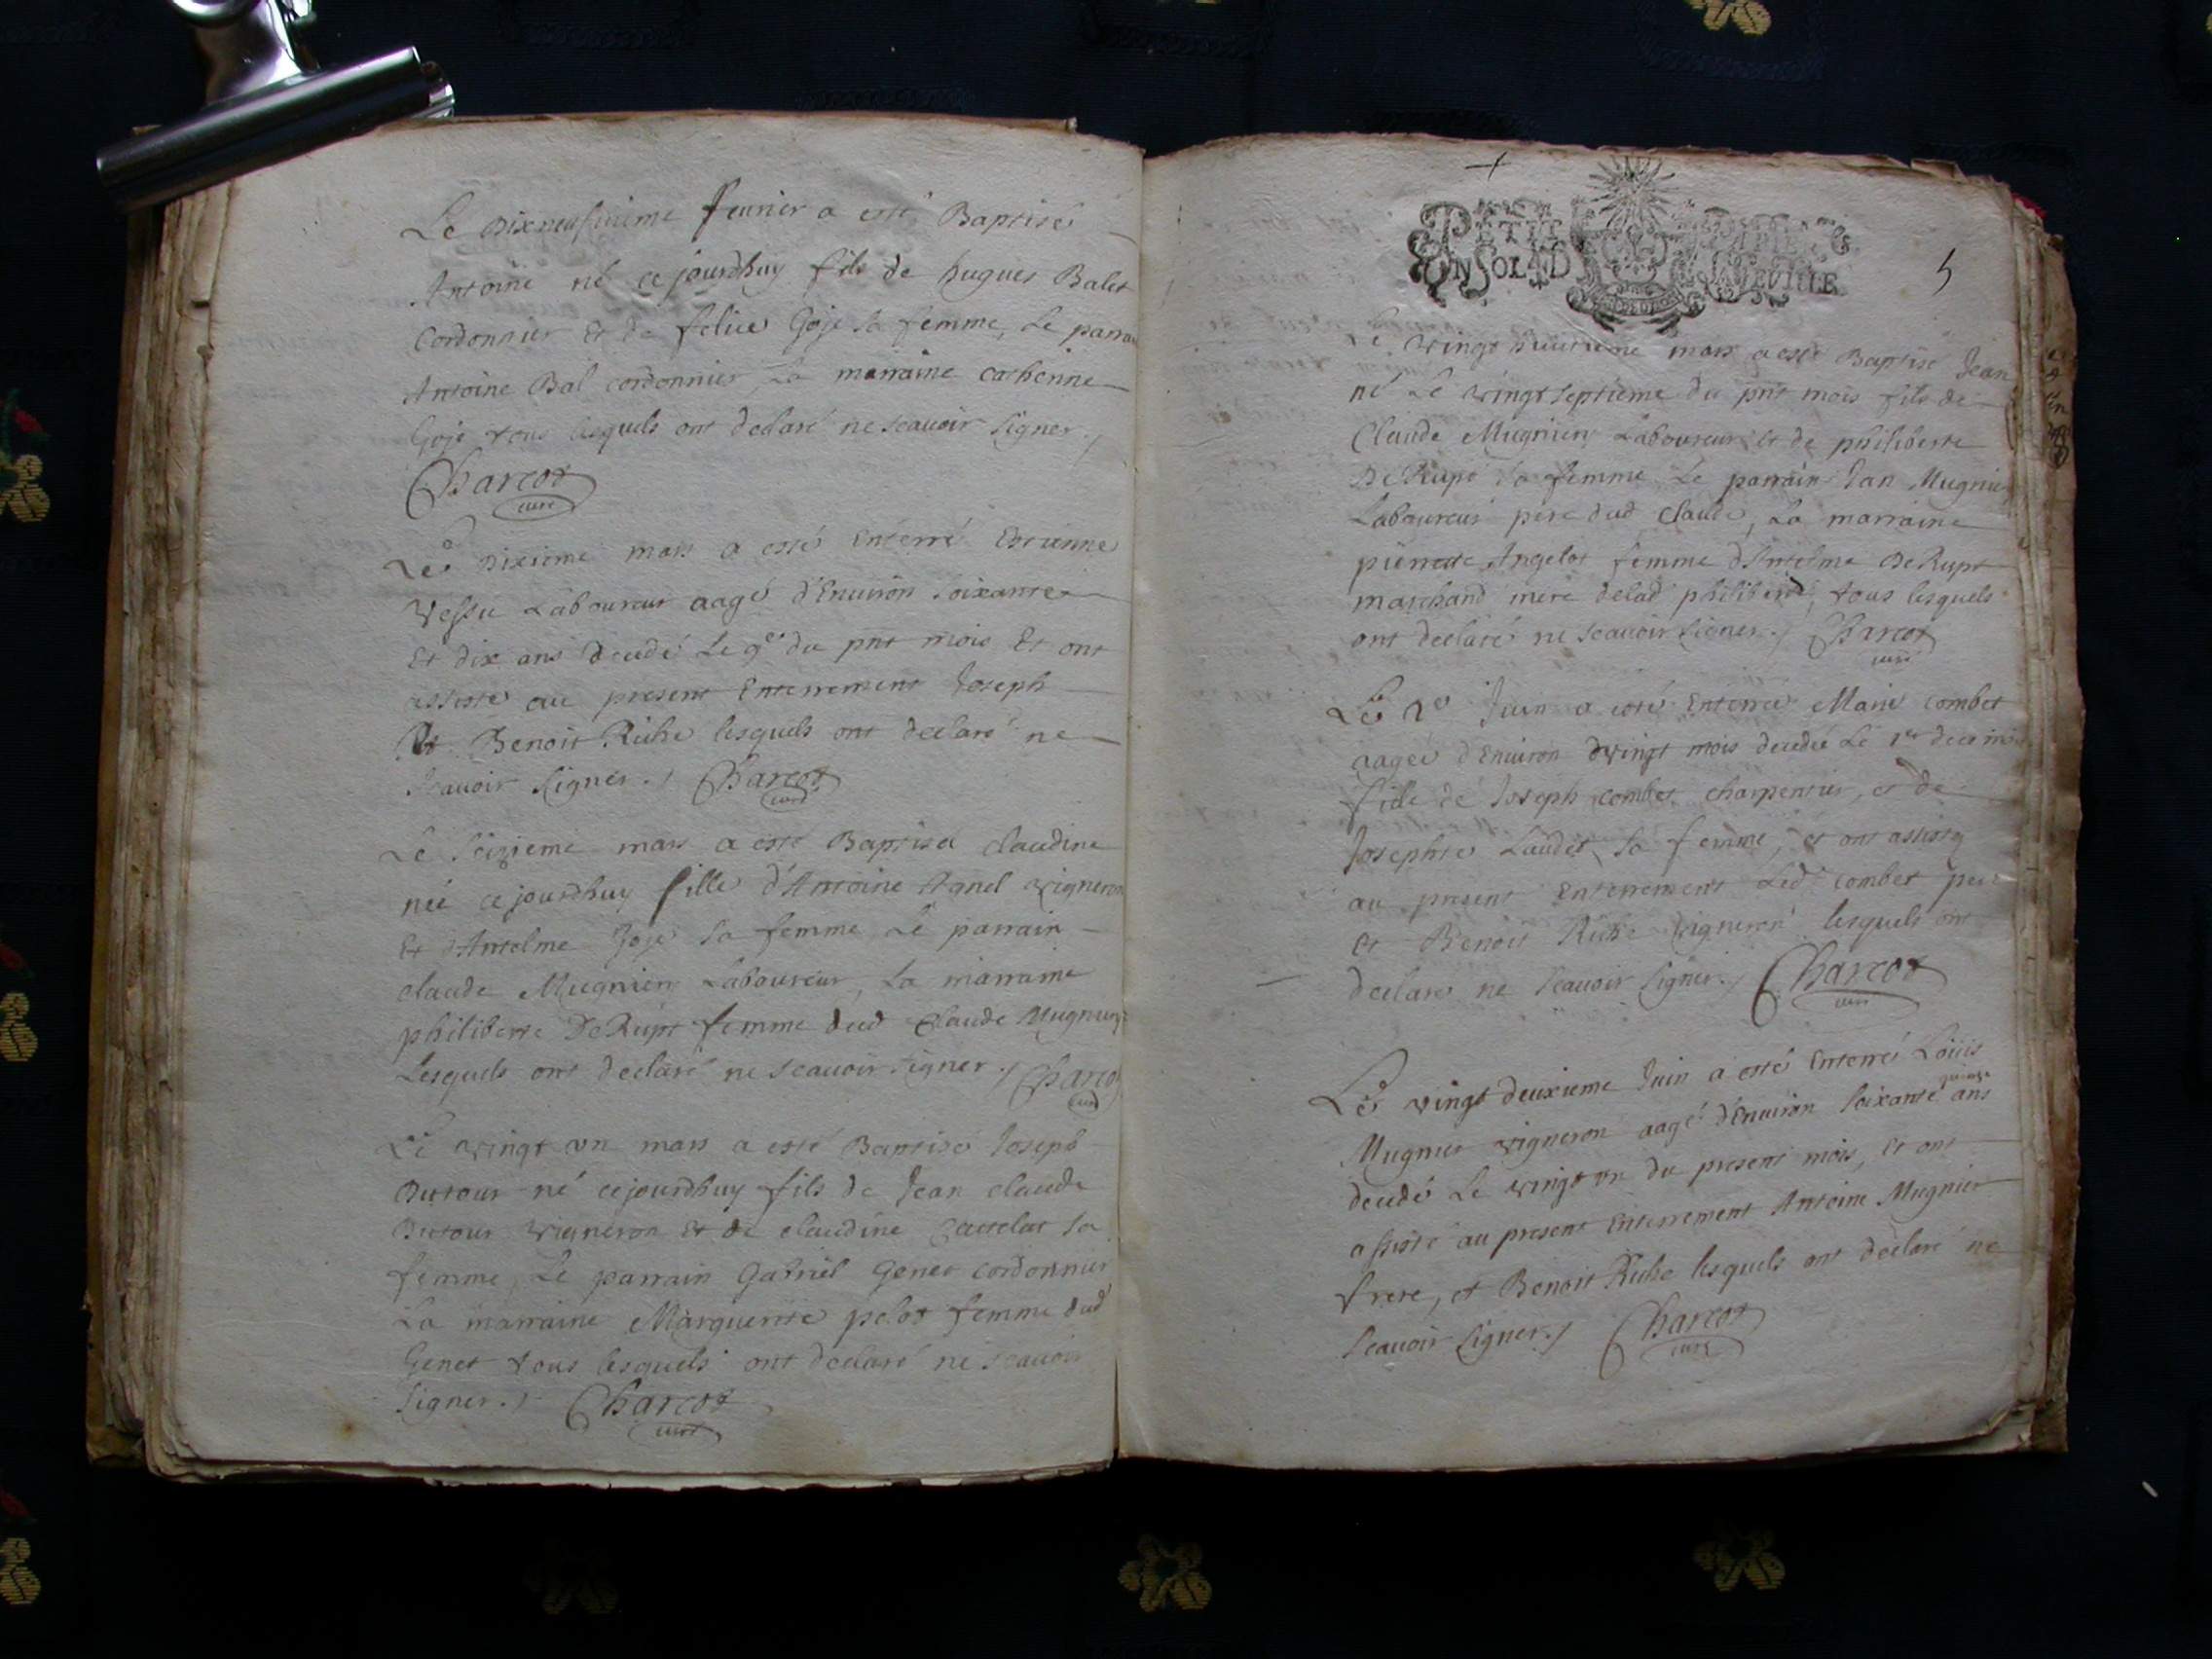 Le Dixneufuieme feurier a esté Baptisé
Antoine né ce jourdhuy fils de hugues Balet
Cordonnier Et de felice Goje sa femme, Le parrain
Antoine Bal cordonnier La marraine catherine
Goje tous lesquels ont declaré ne scauoir signer./
Charcot
curé
Le Dixieme mars a esté Enterré Estienne
Vessu Laboureur aagé d'Enuiron soixante
Et dix ans decedé Le 9e du pnt mois Et ont
assisté au present Enterrement Joseph
Et Benoit Riche lesquels ont declaré ne
scauoir signer./ Charcot
curé
Le seizieme mars a esté Baptisée claudine
née ce jourdhuy fille d'Antoine Aanel vigneron
Et d'Antelme Goje sa femme Le parrain
claude Mugnier Laboureur, La marraine
philiberte DeRupt femme dud Claude Mugnier
Lesquels ont declaré ne scauoir signer./ Charcot
curé
Le vingt vn mars a esté Baptisé Joseph
Dutour né cejourdhuy fils de Jean claude
Dutour vigneron Et de claudine Cautelat sa
femme, Le parrain Gabriel Genet cordonnier
La marraine Marguerite pelot femme dud
Genet tous lesquels ont declaré ne scauoir
signer./ Charcot
curé
PETIT PAPIER
UN SOL 4 D LA FEUILLE
5
Le vingt huictieme mars a esté Baptisé Jean
né Le vingt septieme du pnt mois fils de
Claude Mugnier Laboureur et de philiberte
DeRupt sa femme Le parrain Jan Mugnier
Laboureur pere dud claude, La marraine
pierrette Angelot femme d'Antelme DeRupt
marchand mere delad philiberte, tous lesquels
ont declaré ne scauoir signer./ Charcot
curé
Le 2e Juin a esté Enterrée Marie combet
aagée d'Enuiron vingt mois decedée Le 1er dece mois
fille de Joseph combet charpentier, et de
Josephte Laudet sa femme, et ont assisté
au present Enterrement Led combet pere
et Benoit Riche vigneron lesquels ont
declaré ne scauoir signer./ Charcot
curé
Le vingt deuxieme Juin a esté Enterré Loüis
Mugnier vigneron aagé d'Enuiron soixante quinze ans
decedé Le vingt vn du present mois, et ont
assisté au present Enterrement Antoine Mugnier
frere, et Benoit Riche lesquels ont declaré ne
scauoir signer./ Charcot
curé